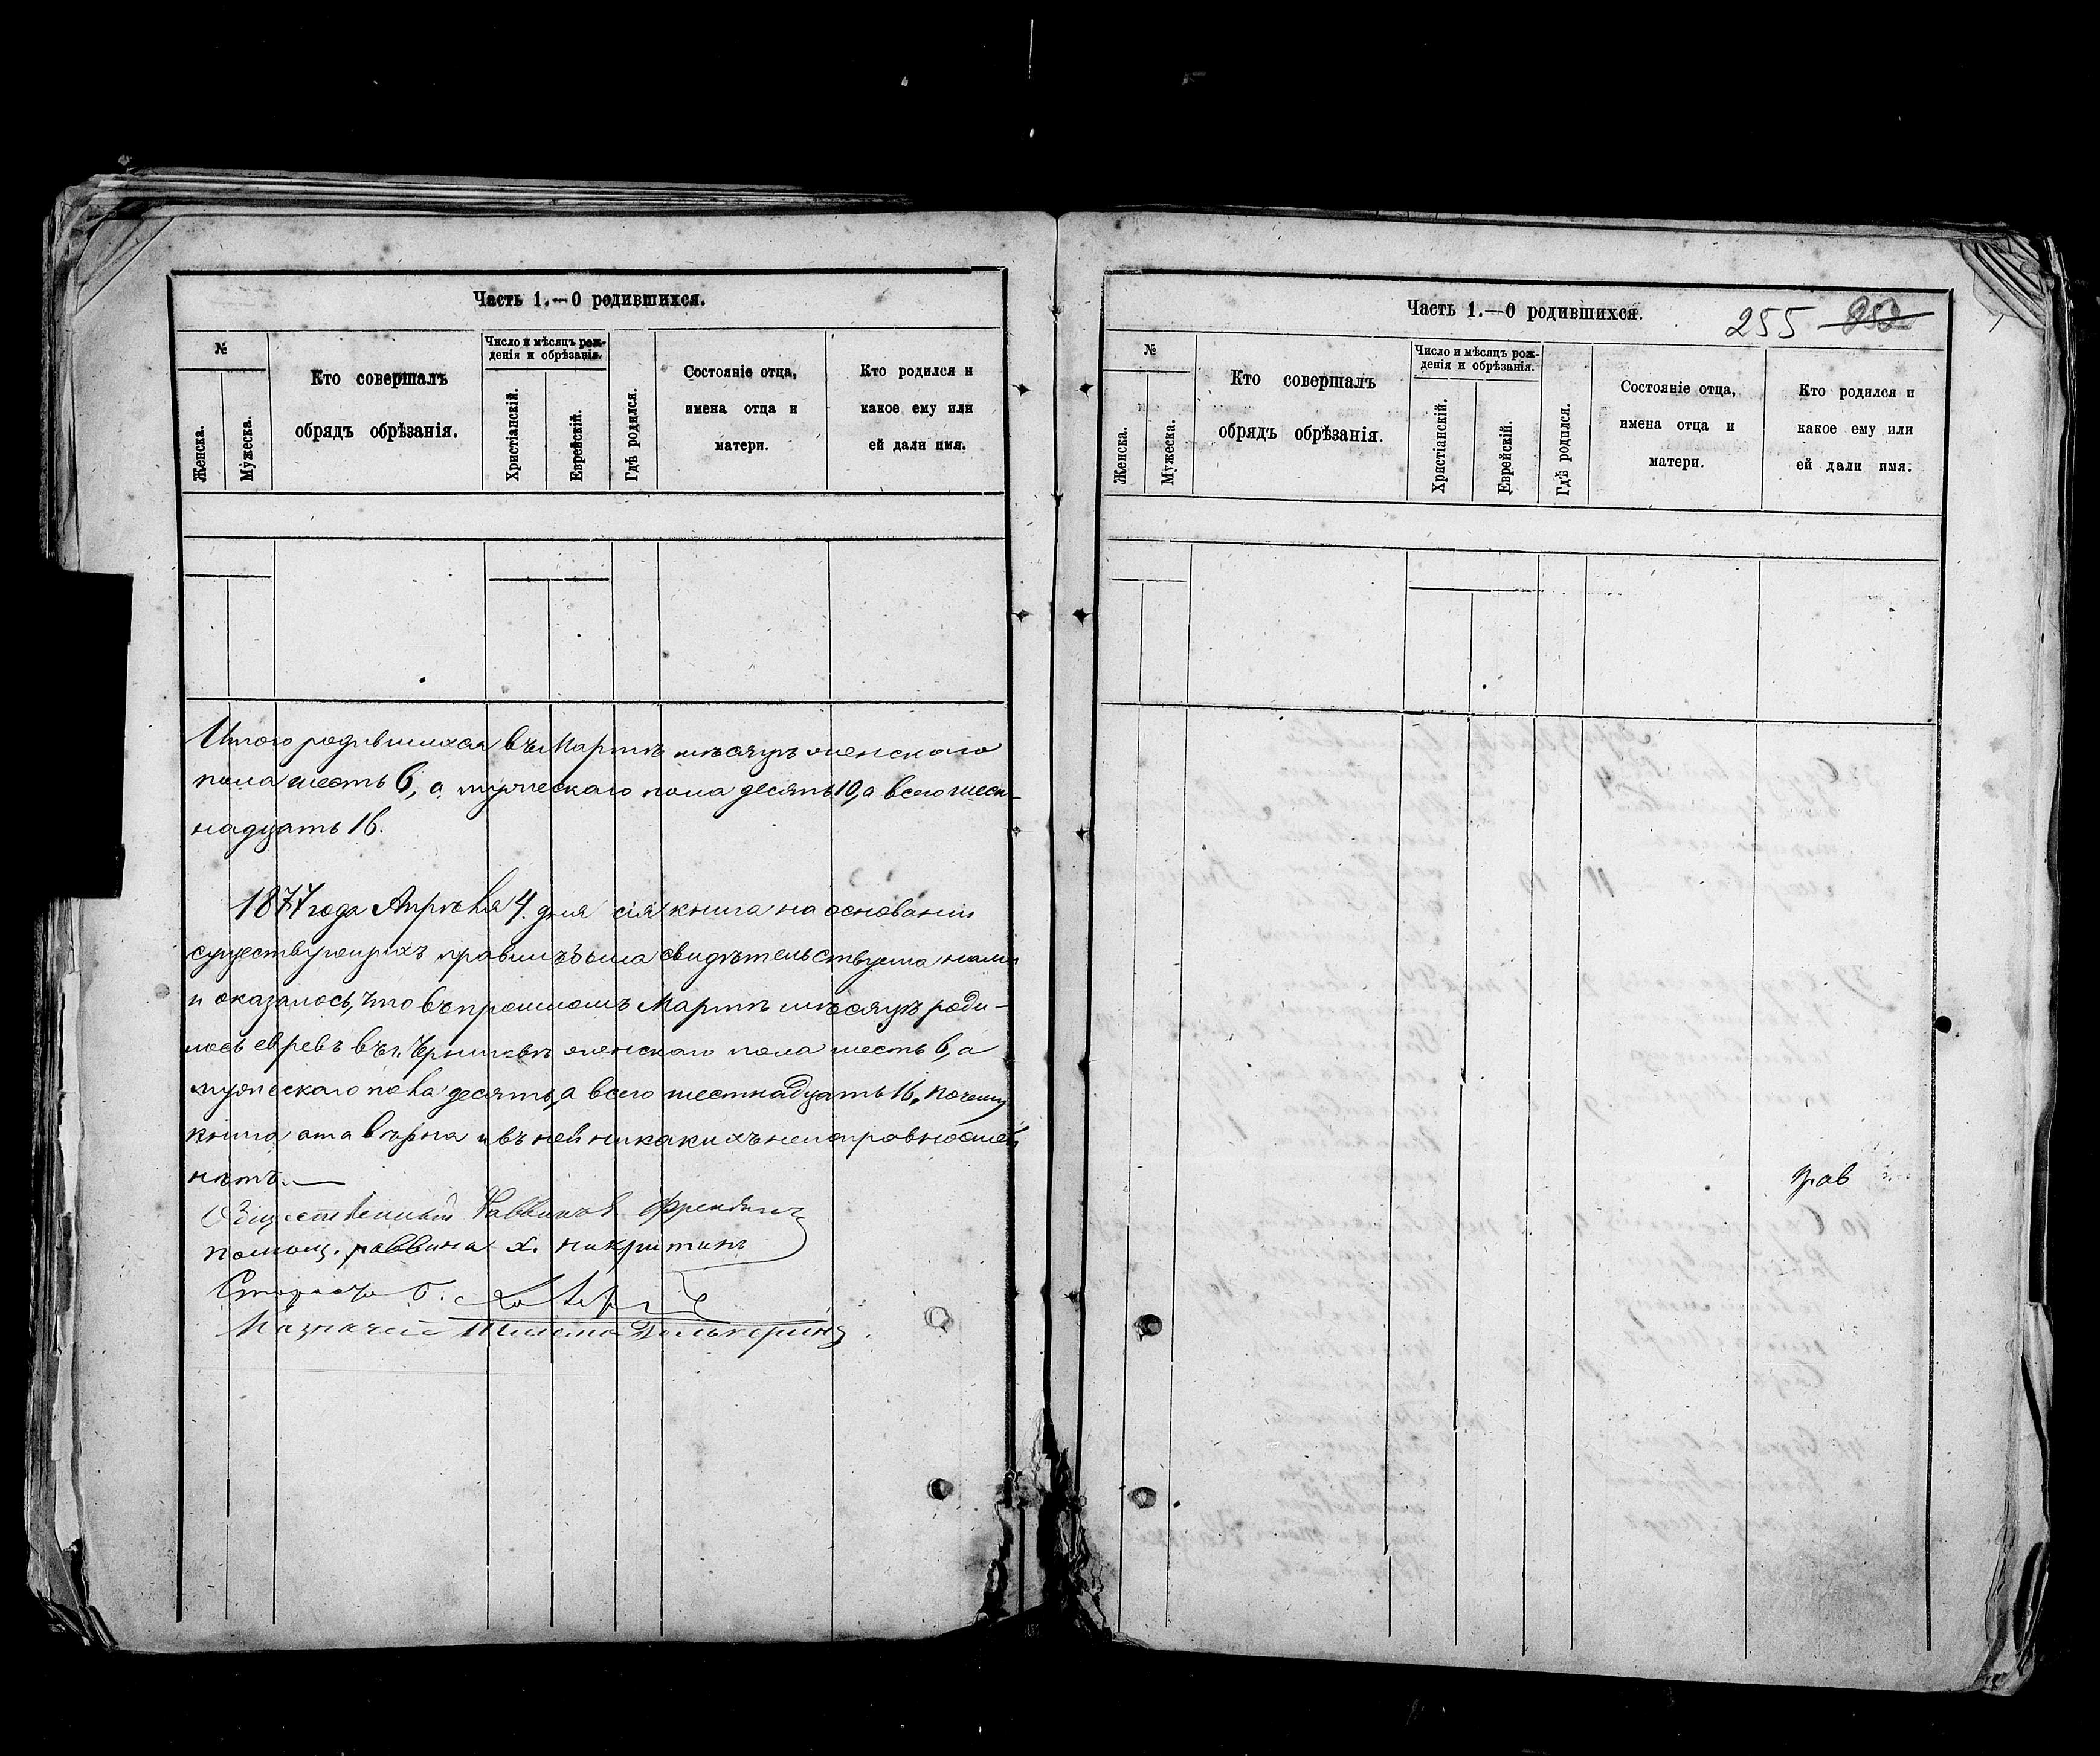 Часть 1.—О родившихся.
№
Женска.
Мужеска.
Кто совершалъ
обрядъ обрѣзанія.
Число и мѣсяцъ рож-
денія и обрѣзанія.
Христіанскій.
Еврейскій.
Гдѣ родился.
Состояніе отца,
имена отца и
матери.
Кто родился и
какое ему или
ей дали имя.
Итого родившихся въ Мартѣ мѣсяцѣ женскаго
пола шесть 6, а мужескаго пола десять 10, а всего шест-
надцать 16.
1877 года Апрѣля 4. дня сія книга на основаніи
существующихъ правилъ была свидѣтельствуема нами
и оказалось, что въ прошломъ Мартѣ мѣсяцѣ роди-
лось евреевъ въ г. женскаго пола шесть 6, а
мужескаго пола десять, а всего шестнадцать 16, почему
книга эта вѣрна и въ ней никакихъ неисправностей
нѣтъ.—
Общественный Раввинъ
помощ. раввина х. никритинъ
Староста Б.
Казначей
Часть 1.—О родившихся.
255 253
№
Женска.
Мужеска.
Кто совершалъ
обрядъ обрѣзанія.
Число и мѣсяцъ рож-
денія и обрѣзанія.
Христіанскій.
Еврейскій.
Гдѣ родился.
Состояніе отца,
имена отца и
матери.
Кто родился и
какое ему или
ей дали имя.